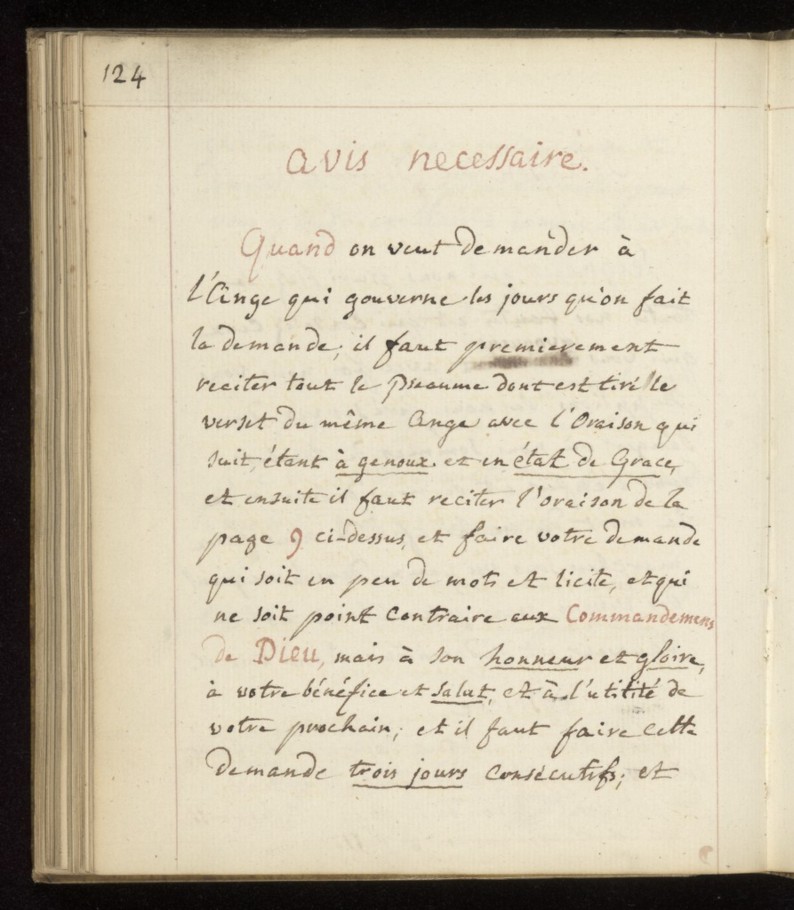 124
avis necessaire.
Quand on veut demander à
l'Ange qui gouverne les jours qu'on fait
la demande; il faut premierement
reciter tout le Pseaume dont est tiré le
verset du même Ange avec l'Oraison qui
suit, étant à genoux et en état de Grace,
et ensuite il faut reciter l'oraison de la
page 9 ci-dessus, et faire votre demande
qui soit en peu de mots et licite, et qui
ne soit point contraire aux Commandemens
de Dieu, mais à son honneur et gloire,
à votre bénéfice et salut, et à l'utilité de
votre prochain; et il faut faire cette
demande trois jours consécutifs; et